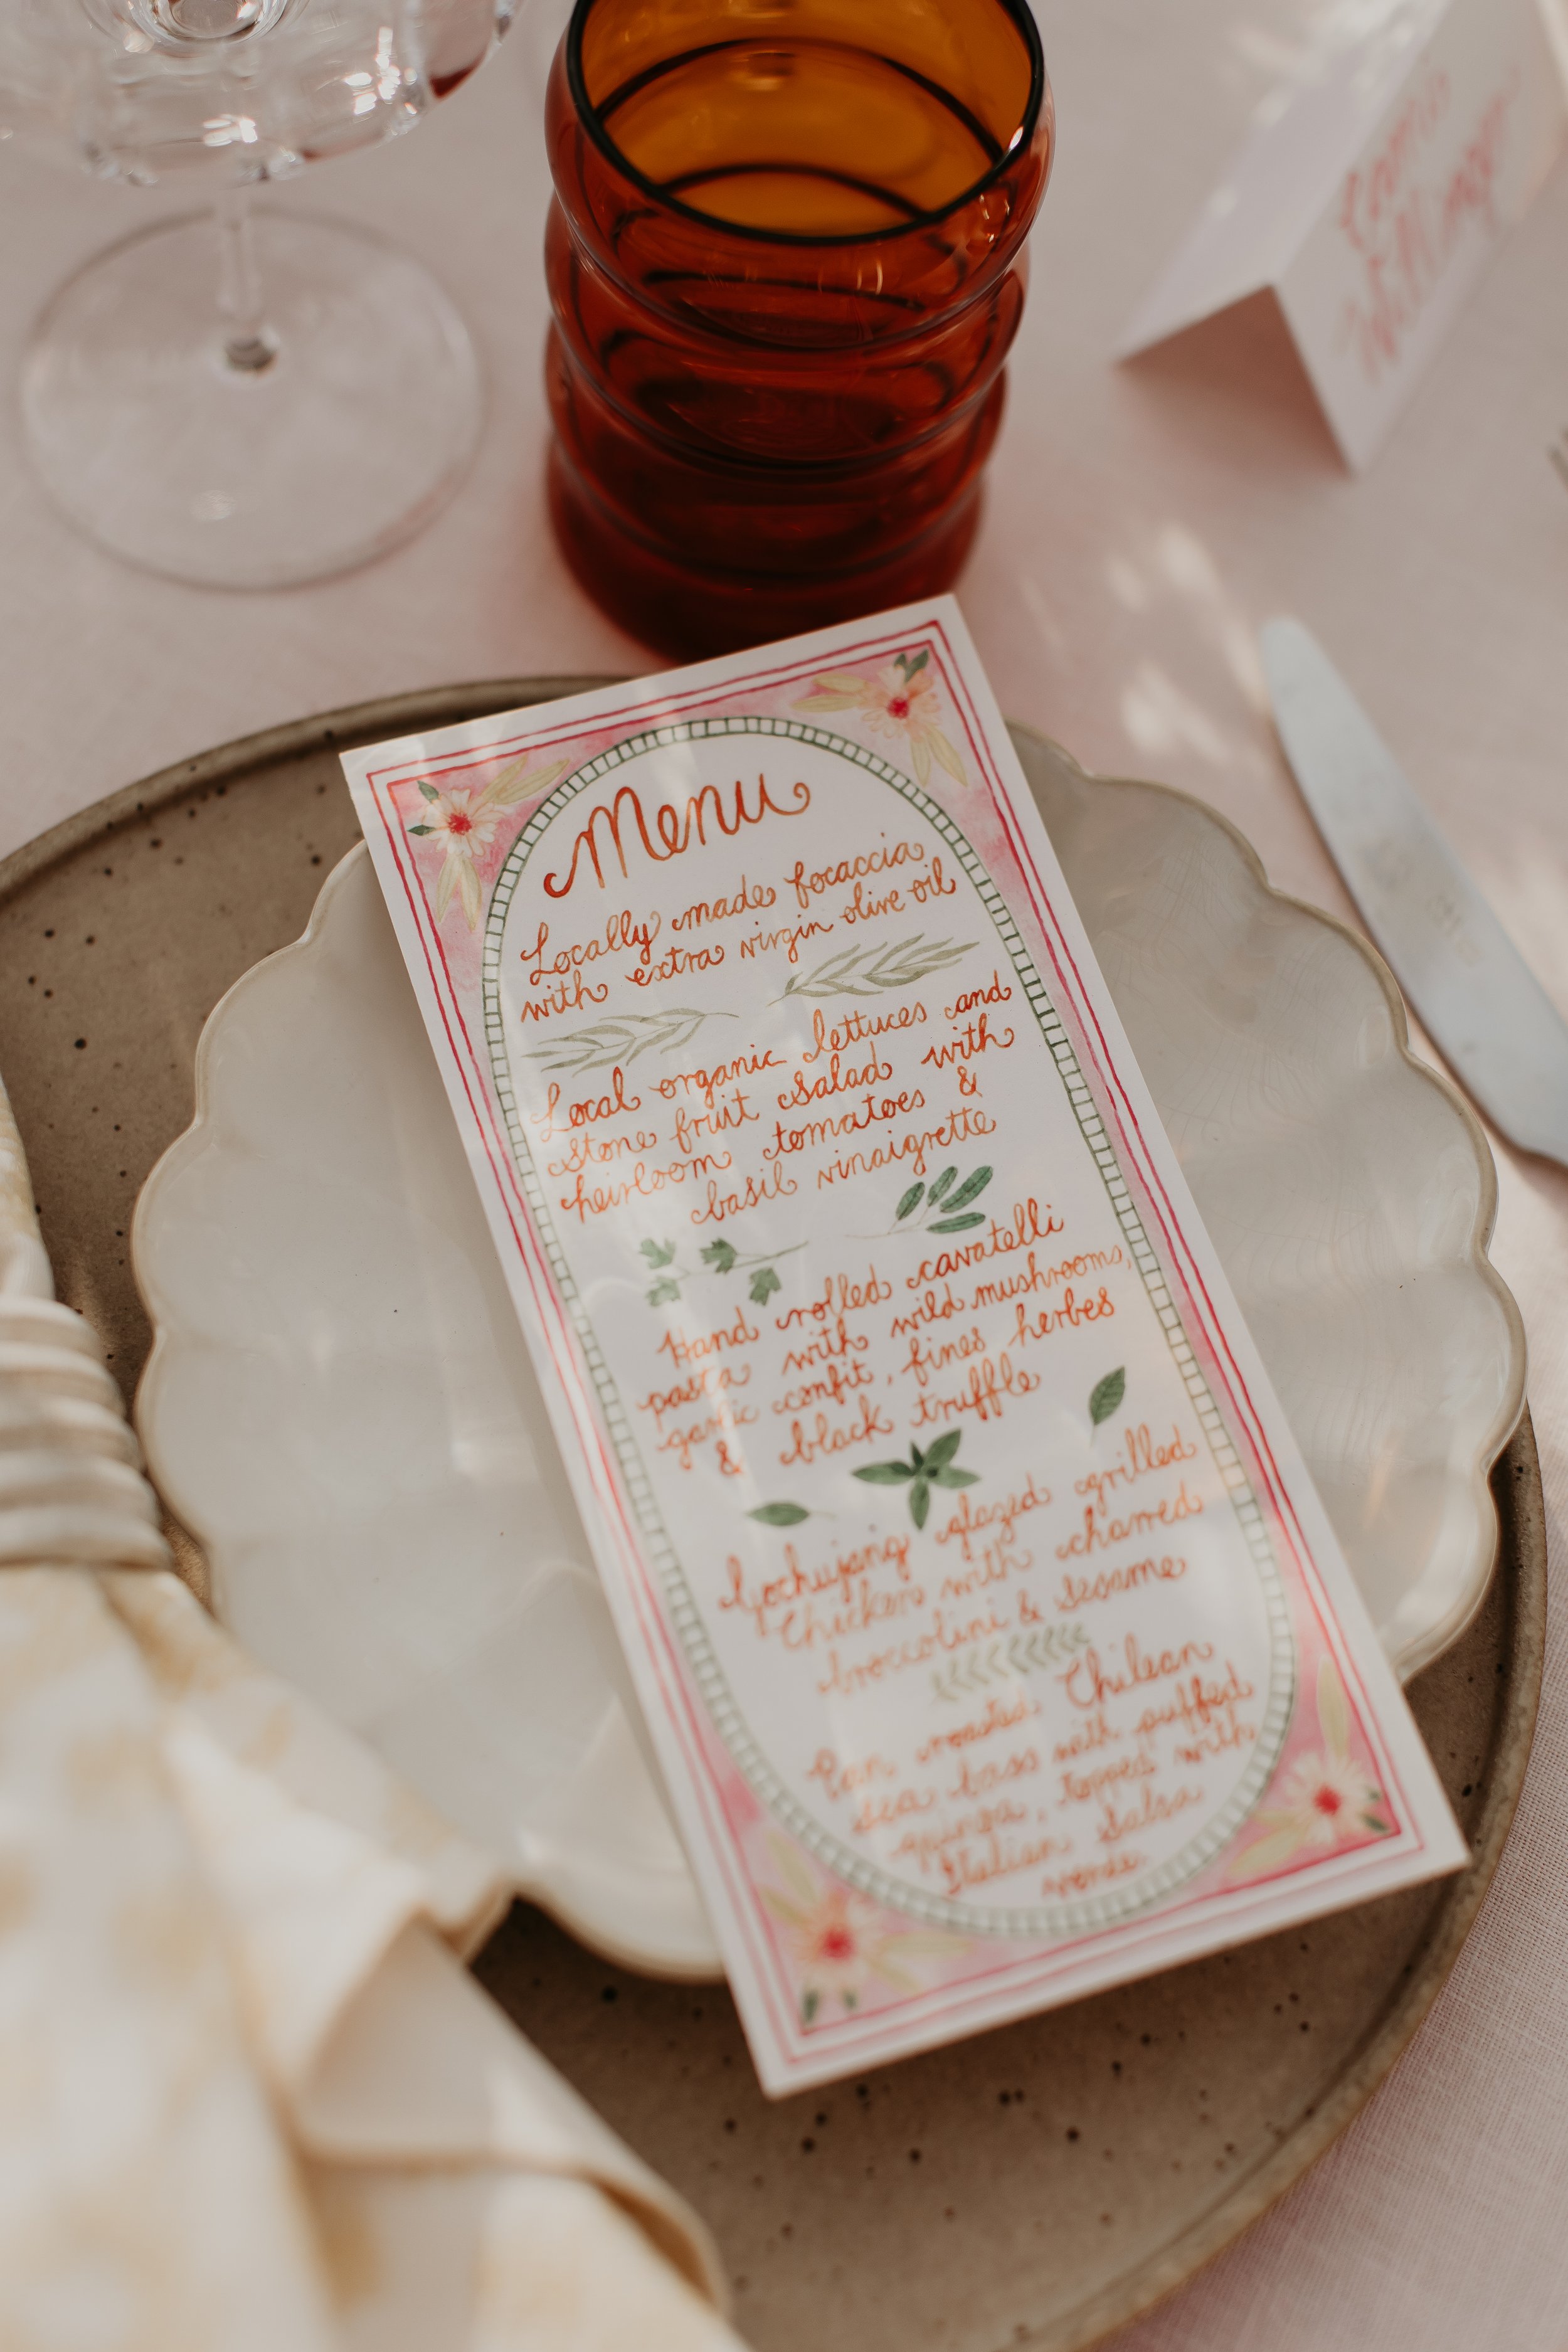 Menu
Locally made focaccia
with extra virgin olive oil
Local organic lettuces and
stone fruit salad with
heirloom tomatoes &
basil vinaigrette
Hand rolled cavatelli
pasta with wild mushrooms,
garlic confit, fines herbes
& black truffle
Gochujang glazed grilled
Chicken with charred
broccolini & sesame
Pan roasted Chilean
sea bass with puffed
quinoa, topped with
Italian Salsa
verde.